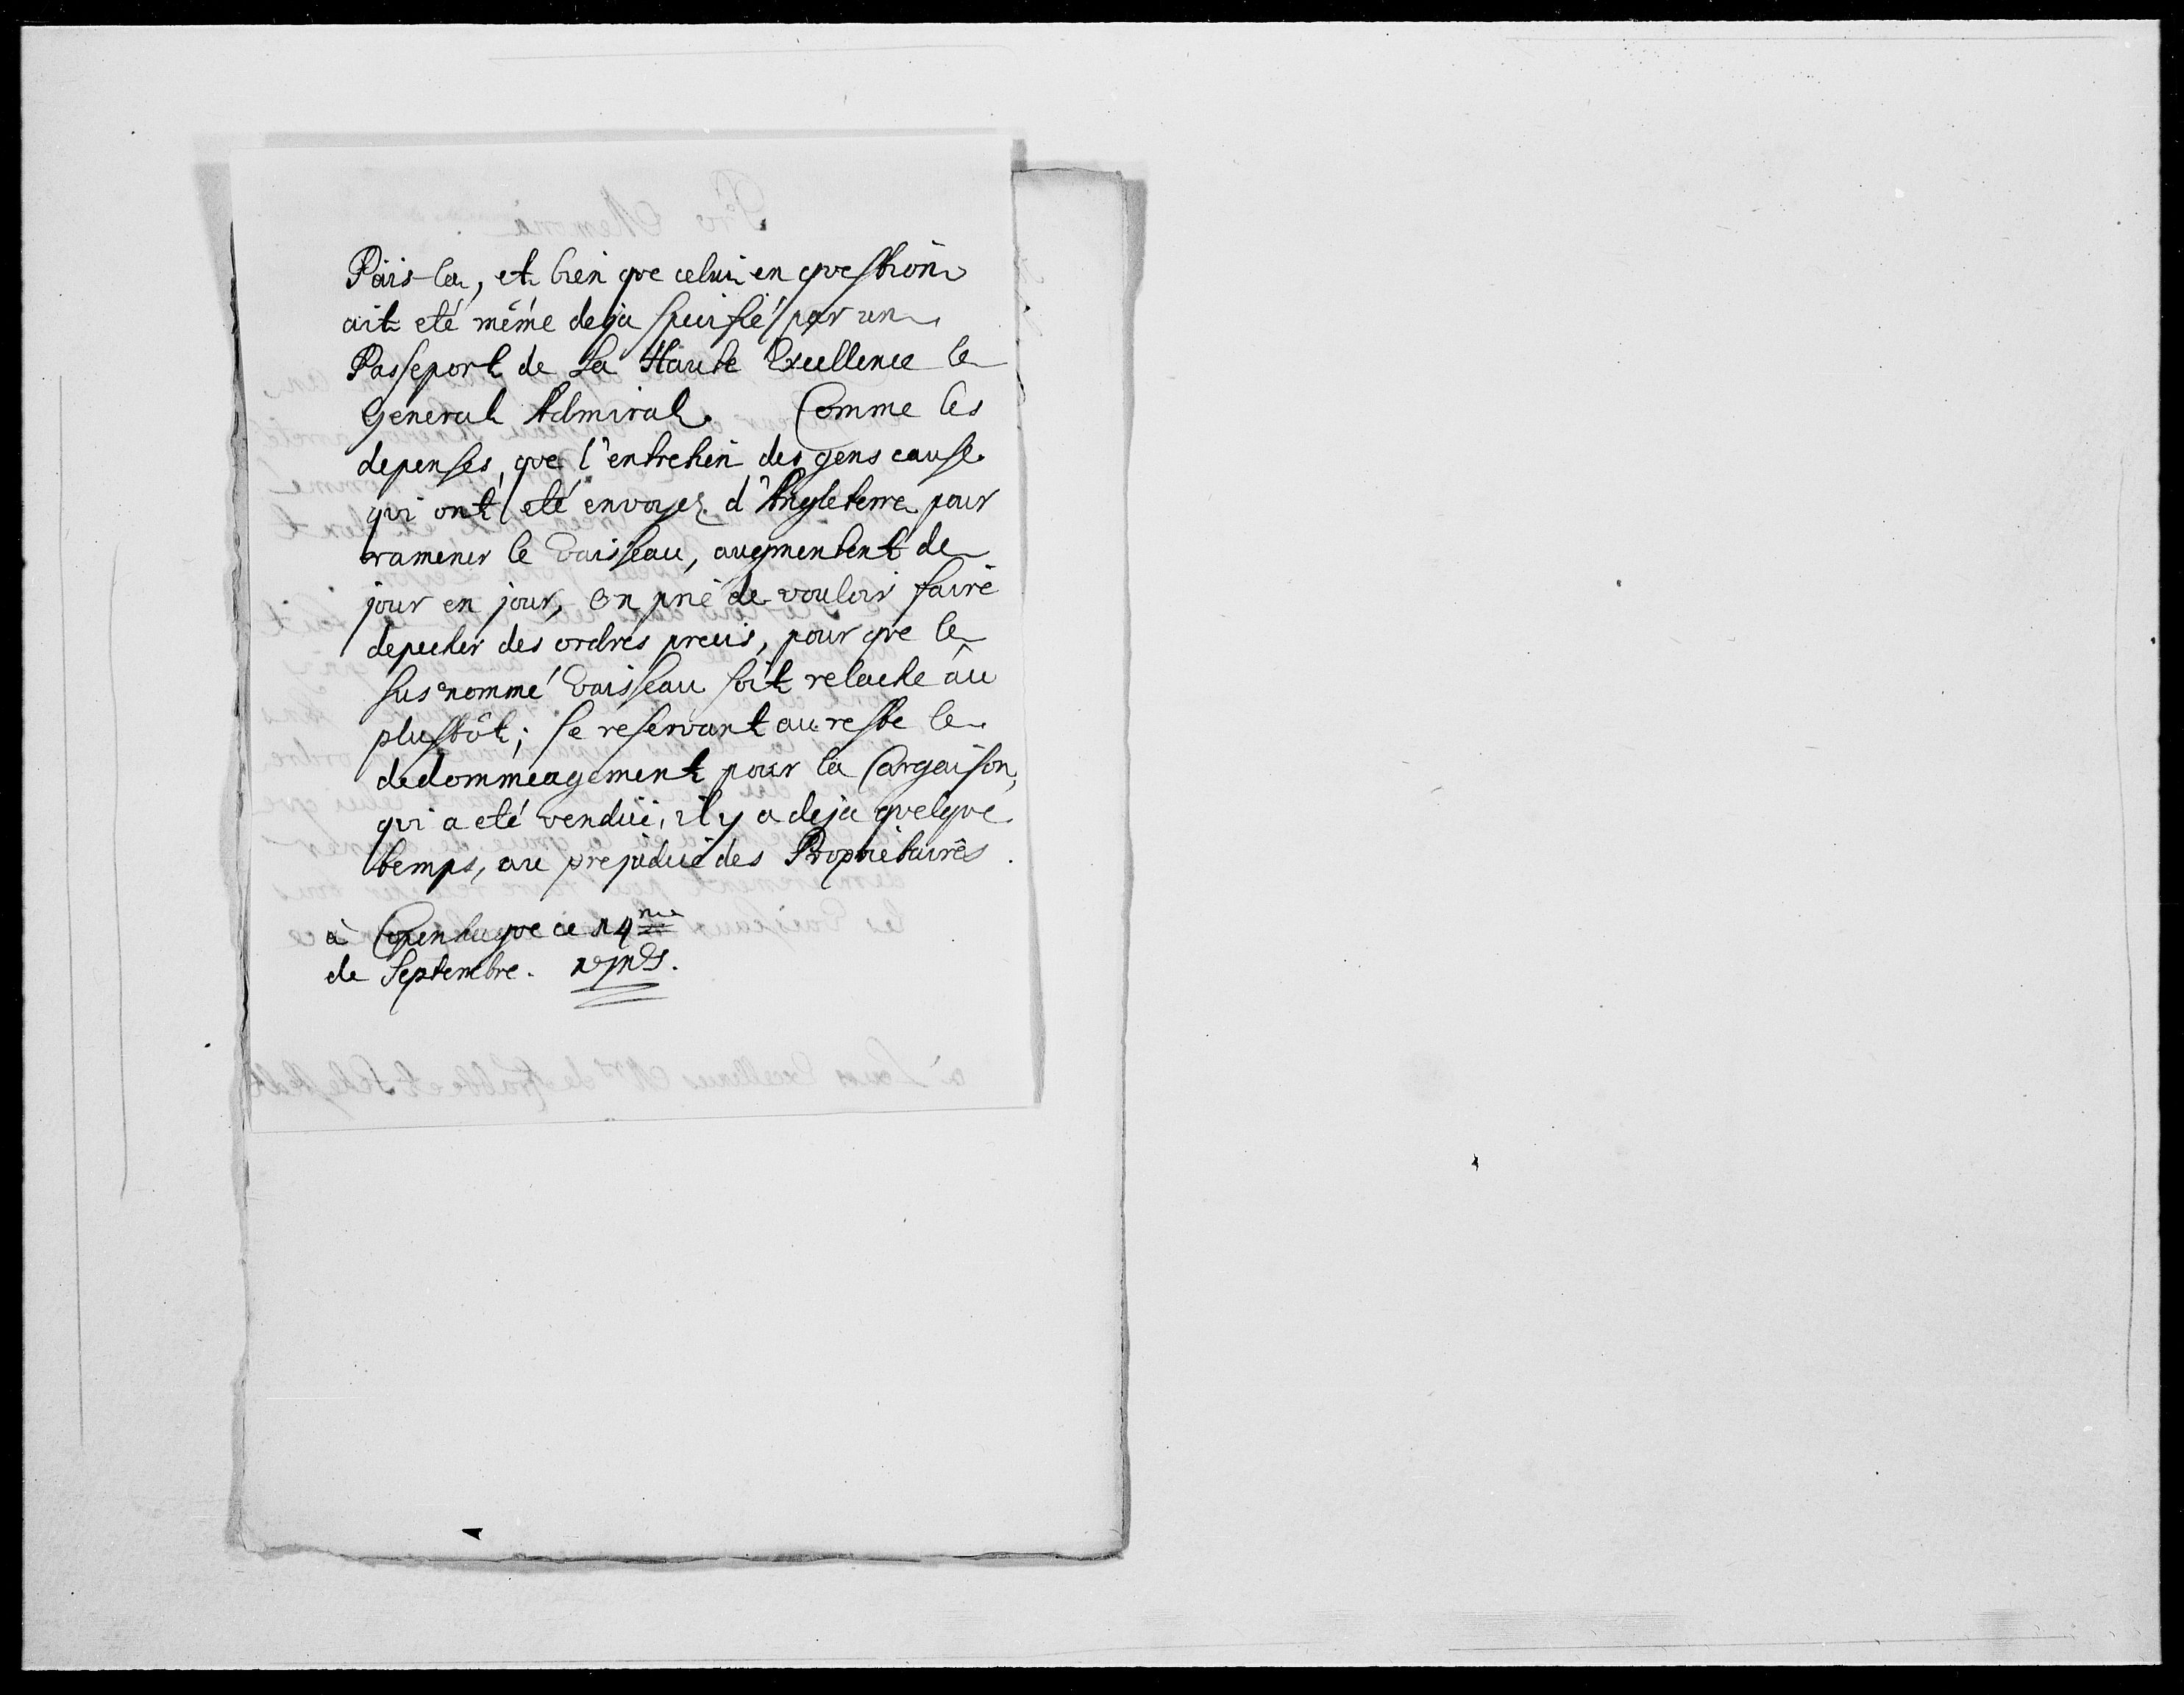 Païs-la, et bien que celui en question
ait eté même deja specifié par un
Passeport de Sa Haute Excellence le
General Admiral. Comme les
depenses, que l'entretien des gens cause
qui ont eté envoyez d'Angleterre pour
ramener le Vaisseau, augmentent de
jour en jour, on prie de vouloir faire
depecher des ordres precis, pour que le
susnommé Vaisseau soit relaché au
plustôt; se reservant au reste le
dedommeagement pour la Cargaison,
qui a eté vendüe, il y a deja quelque
temps, au prejudice des Proprietaires.
à Copenhague ce 14me
de Septembre.